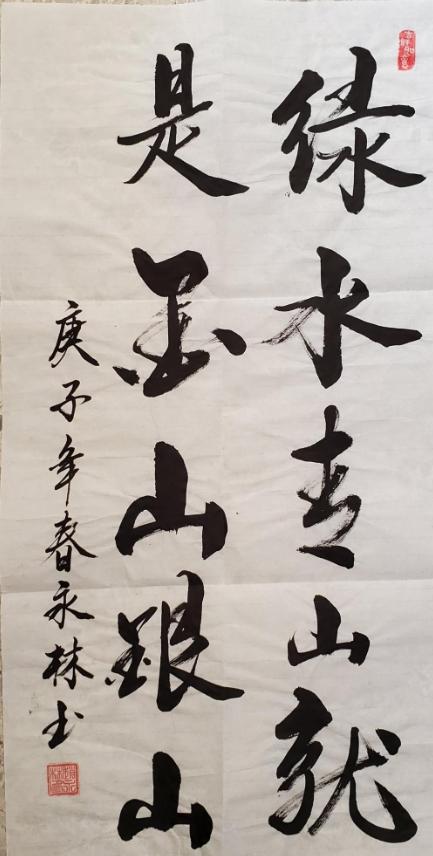 绿水青山就
是金山银山
庚子年春永林书